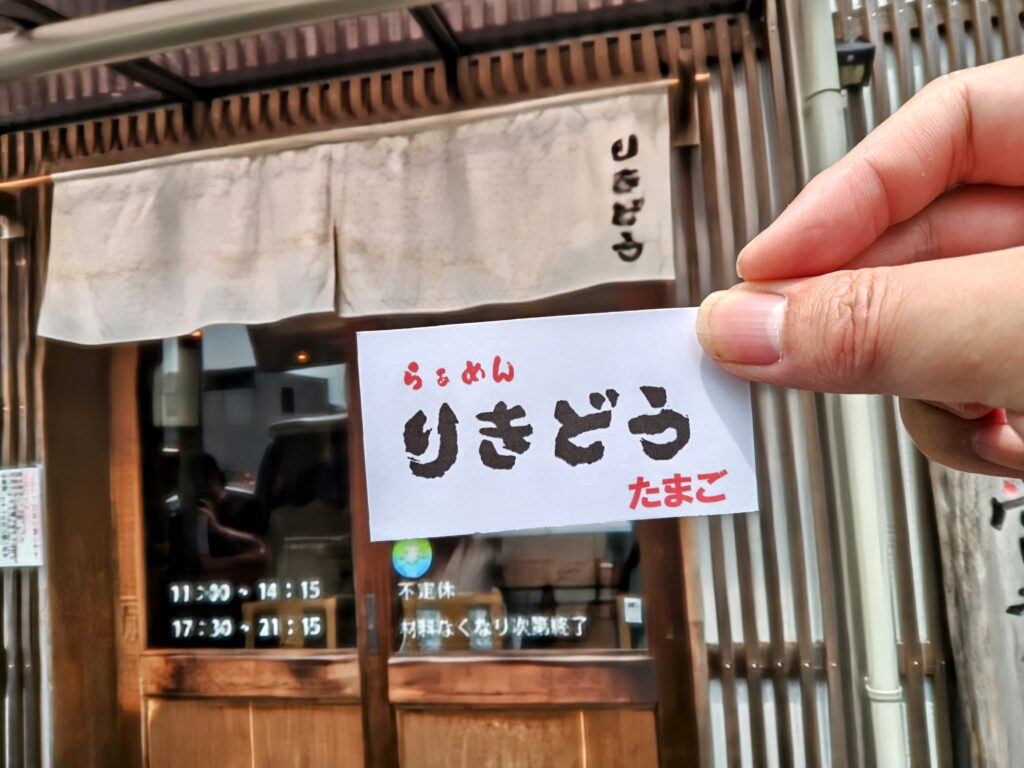 りきどう
らぁめん
りきどう
たまご
11:00 ~ 14:15
17:30 ~ 21:15
不定休
材料なくなり次第終了